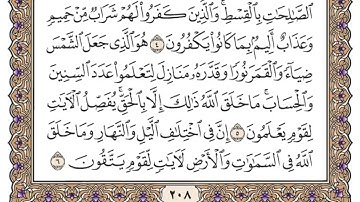 الصَّٰلِحَٰتِ بِالْقِسْطِ ۚ وَالَّذِينَ كَفَرُوا لَهُمْ شَرَابٌ مِّنْ حَمِيمٍ
وَعَذَابٌ أَلِيمٌۢ بِمَا كَانُوا يَكْفُرُونَ ٤ هُوَ الَّذِي جَعَلَ الشَّمْسَ
ضِيَآءً وَالْقَمَرَ نُورًا وَقَدَّرَهُۥ مَنَازِلَ لِتَعْلَمُوا عَدَدَ السِّنِينَ
وَالْحِسَابَ ۚ مَا خَلَقَ اللَّهُ ذَٰلِكَ إِلَّا بِالْحَقِّ ۚ يُفَصِّلُ الْءَايَٰتِ
لِقَوْمٍ يَعْلَمُونَ ٥ إِنَّ فِي اخْتِلَٰفِ الَّيْلِ وَالنَّهَارِ وَمَا خَلَقَ
اللَّهُ فِي السَّمَٰوَٰتِ وَالْأَرْضِ لَءَايَٰتٍ لِّقَوْمٍ يَتَّقُونَ ٦
٢٠٨